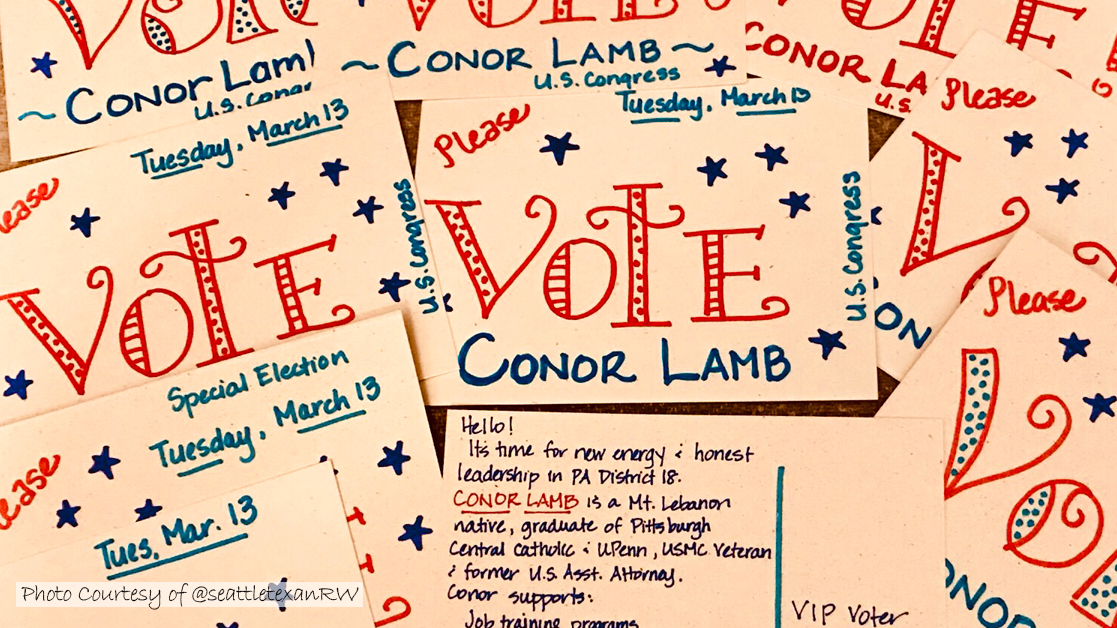 VOTE
~ CONOR LAMB
U.S. Congress
VOTE
~ CONOR LAMB ~
U.S. Congress
VOTE
CONOR LA
U.S.
Tuesday, March 13
Please
VOTE
U.S. Congress
Please
Tuesday, March 13
VOTE
U.S. Congress
CONOR LAMB
Please
V
ON
Please
VO
ONO
Special Election
Tuesday, March 13
Please
Tues, Mar. 13
Hello!
Its time for new energy & honest
leadership in PA District 18.
CONOR LAMB is a Mt. Lebanon
native, graduate of Pittsburgh
Central Catholic & UPenn, USMC Veteran
& former U.S. Asst. Attorney.
Conor supports:
Job training programs
VIP Voter
Photo Courtesy of @seattletexanRW